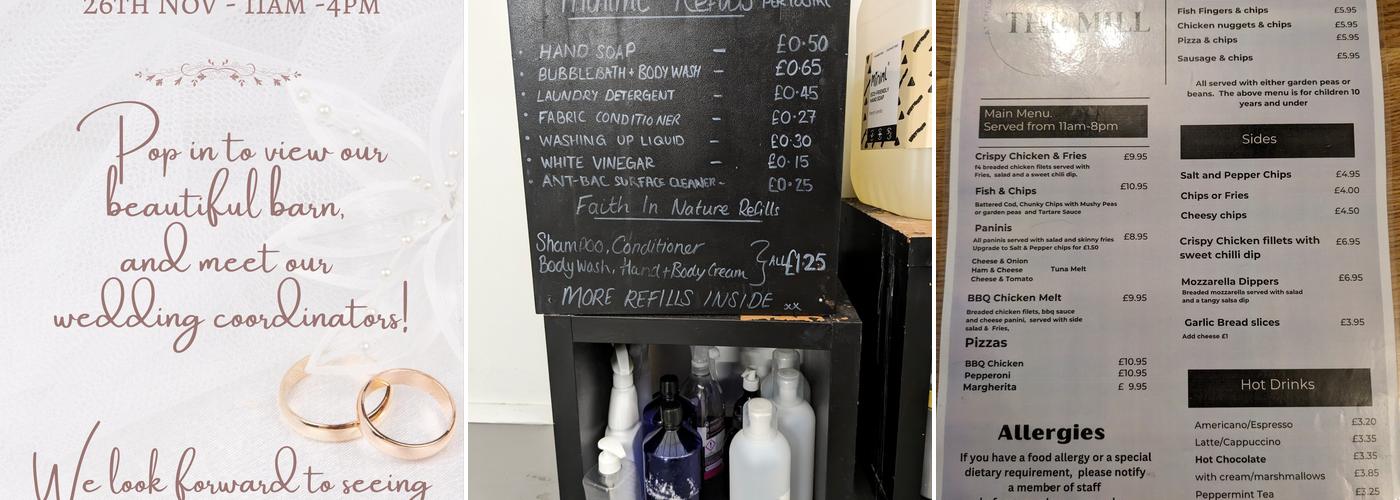 26TH NOV - 11AM -4PM
Pop in to view our
beautiful barn,
and meet our
wedding coordinators!
We look forward to seeing
Minime Refills PER 100ML
• HAND SOAP — £0.50
• BUBBLEBATH + BODY WASH — £0.65
• LAUNDRY DETERGENT — £0.45
• FABRIC CONDITIONER — £0.27
• WASHING UP LIQUID — £0.30
• WHITE VINEGAR — £0.15
• ANT-BAC SURFACE CLEANER - £0.25
Faith In Nature Refills
Shampoo, Conditioner
Body Wash, Hand + Body Cream } ALL £1.25
MORE REFILLS INSIDE xx
miniml
ECO-FRIENDLY
HAND SOAP
THE MILL
Main Menu.
Served from 11am-8pm
Crispy Chicken & Fries £9.95
f4 breaded chicken filets served with
Fries, salad and a sweet chili dip.
Fish & Chips £10.95
Battered Cod, Chunky Chips with Mushy Peas
or garden peas and Tartare Sauce
Paninis
All paninis served with salad and skinny fries £8.95
Upgrade to Salt & Pepper chips for £1.50
Cheese & Onion
Ham & Cheese Tuna Melt
Cheese & Tomato
BBQ Chicken Melt £9.95
Breaded chicken filets, bbq sauce
and cheese panini, served with side
salad & Fries,
Pizzas
BBQ Chicken £10.95
Pepperoni £10.95
Margherita £ 9.95
Allergies
If you have a food allergy or a special
dietary requirement, please notify
a member of staff
Fish Fingers & chips £5.95
Chicken nuggets & chips £5.95
Pizza & chips £5.95
Sausage & chips £5.95
All served with either garden peas or
beans. The above menu is for children 10
years and under
Sides
Salt and Pepper Chips £4.95
Chips or Fries £4.00
Cheesy chips £4.50
Crispy Chicken fillets with £6.95
sweet chilli dip
Mozzarella Dippers £6.95
Breaded mozzarella served with salad
and a tangy salsa dip
Garlic Bread slices £3.95
Add cheese £1
Hot Drinks
Americano/Espresso £3.20
Latte/Cappuccino £3.35
Hot Chocolate £3.35
with cream/marshmallows £3.85
Peppermint Tea £3.25